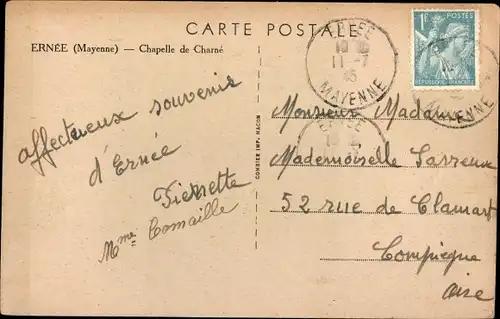 CARTE POSTALE
ERNÉE (Mayenne) — Chapelle de Charné
affectueux souvenir
d'Ernée
Pierrette
Mme Comaille
COURIER IMP. MACON
ERNÉE
11-7
45
MAYENNE
1F POSTES
RÉPUBLIQUE FRANÇAISE
Monsieur Madame
Mademoiselle Sarreux
52 rue de Clamart
Compiègne
Oise